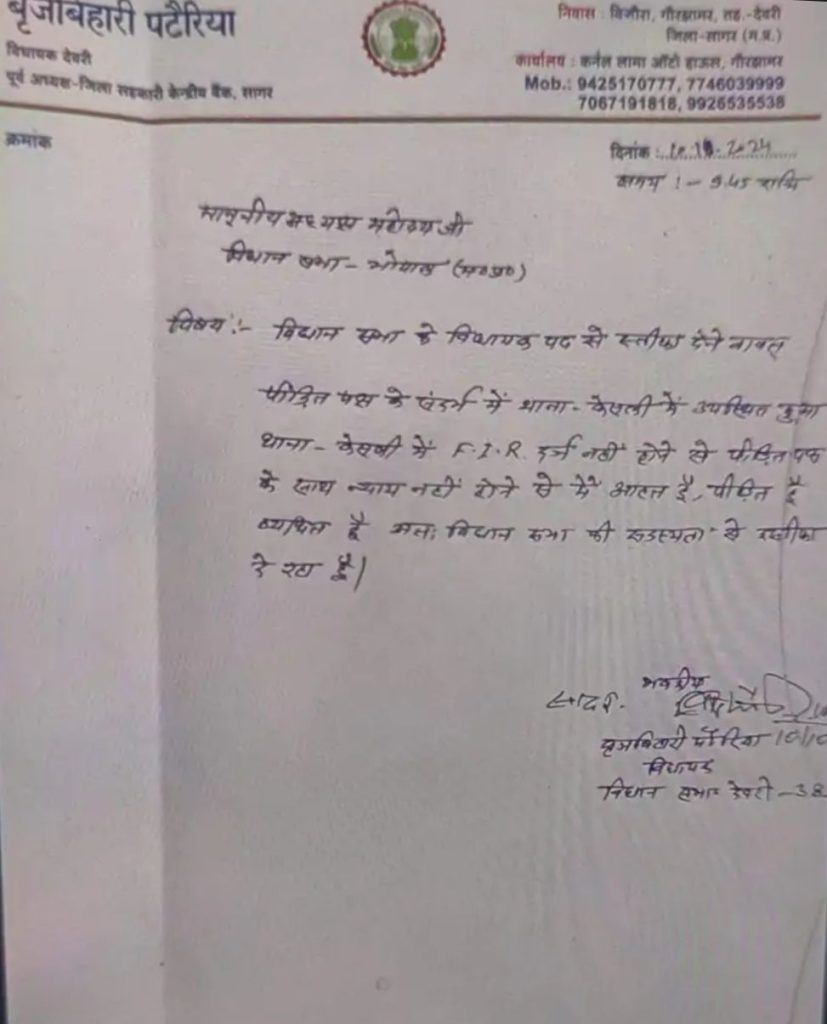 बृजबिहारी पटैरिया
विधायक देवरी
पूर्व अध्यक्ष-जिला सहकारी केन्द्रीय बैंक, सागर
निवास : बिजौरा, गौरझामर, तह.-देवरी
जिला-सागर (म.प्र.)
कार्यालय : कर्नल लामा ऑटो हाऊस, गौरझामर
Mob.: 9425170777, 7746039999
7067191818, 9926535538
क्रमांक
दिनांक : 10.10.2024
समय :- 9.45 रात्रि
माननीय अध्यक्ष महोदय जी
विधान सभा - भोपाल (म०प्र०)
विषय :- विधान सभा के विधायक पद से स्तीफा देने बाबत्
पीड़ित पक्ष के संदर्भ में थाना - केसली में उपस्थित हुआ
थाना - केसली में F.I.R. दर्ज नहीं होने से पीड़ित पक्ष
के साथ न्याय नहीं होने से मैं आहत हूँ, पीड़ित हूँ
व्यथित हूँ अतः विधान सभा की सदस्यता से स्तीफा
दे रहा हूँ।
भवदीय
सादर.
बृजबिहारी पटैरिया 10/10
विधायक
विधान सभा देवरी - 38